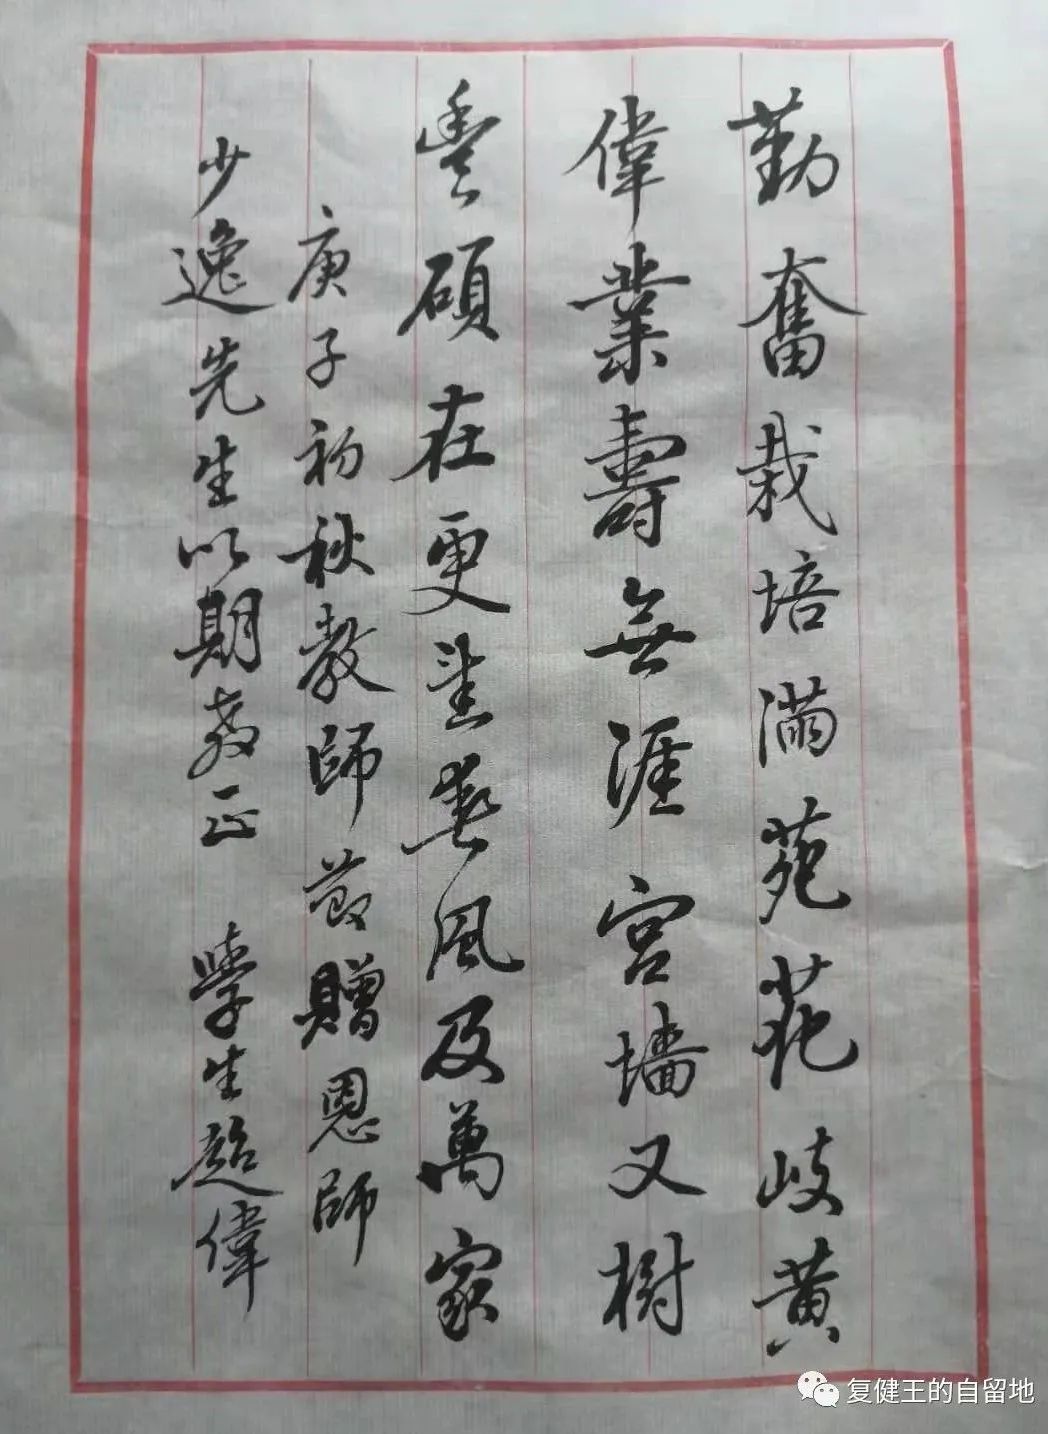 勤奮栽培滿苑花岐黄
偉業壽無涯宫墙又樹
豐碩在更望春風及萬家
庚子初秋教師節贈恩師
少逸先生以期教正 學生超偉
复健王的自留地